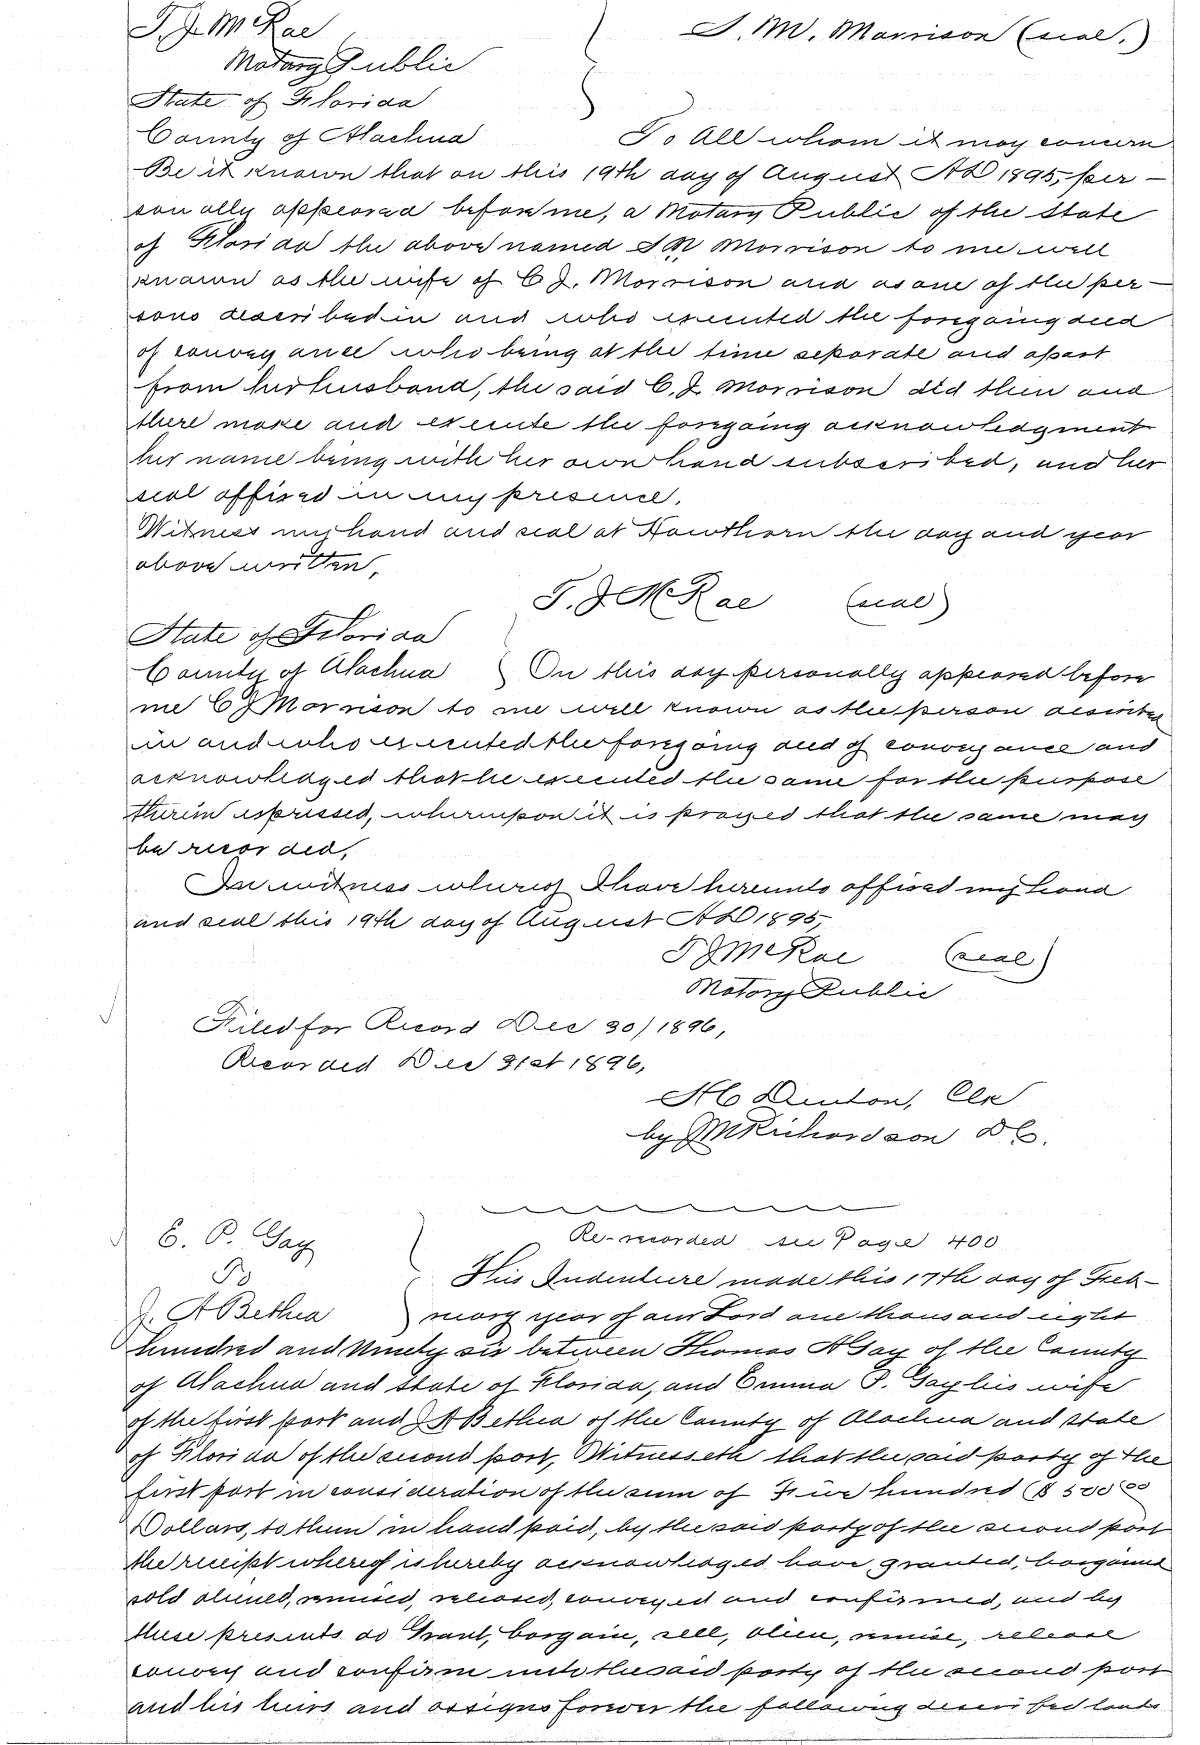 T. J. McRae S. M. Morrison (seal.)
Notary Public
State of Florida
County of Alachua To All whom it may concern
Be it known that on this 19th day of August AD 1895, per-
sonally appeared before me, a Notary Public of the State
of Florida the above named S M Morrison to me well
known as the wife of C J. Morrison and as one of the per-
sons described in and who executed the foregoing deed
of conveyance who being at the time separate and apart
from her husband, the said C. J. Morrison did then and
there make and execute the foregoing acknowledgment
her name being with her own hand subscribed, and her
seal affixed in my presence.
Witness my hand and seal at Hawthorn the day and year
above written,
T. J McRae (seal)
State of Florida
County of Alachua On this day personally appeared before
me C J Morrison to me well known as the person described
in and who executed the foregoing deed of conveyance and
acknowledged that he executed the same for the purpose
therein expressed, whereupon it is prayed that the same may
be recorded,
In witness whereof I have hereunto affixed my hand
and seal this 19th day of August AD 1895,
T J McRae (seal)
Notary Public
Filed for Record Dec 30/1896,
Recorded Dec 31st 1896,
H C Denton, Clk
by J M Richardson D C.
Re-recorded see Page 400
E. P. Gay
To This Indenture made this 17th day of Feb-
J. A Bethea ruary year of our Lord one thousand eight
hundred and Ninety six between Thomas H Gay of the County
of Alachua and State of Florida, and Emma P. Gay his wife
of the first part and J A Bethea of the County of Alachua and State
of Florida of the second part, Witnesseth that the said party of the
first part in consideration of the sum of Five hundred ($ 500 00
Dollars, to them in hand paid, by the said party of the second part
the receipt whereof is hereby acknowledged have granted, bargained
sold aliened, remised, released, conveyed and confirmed, and by
these presents do Grant, bargain, sell, alien, remise, release
convey and confirm unto the said party of the second part
and his heirs and assigns forever the following described lands